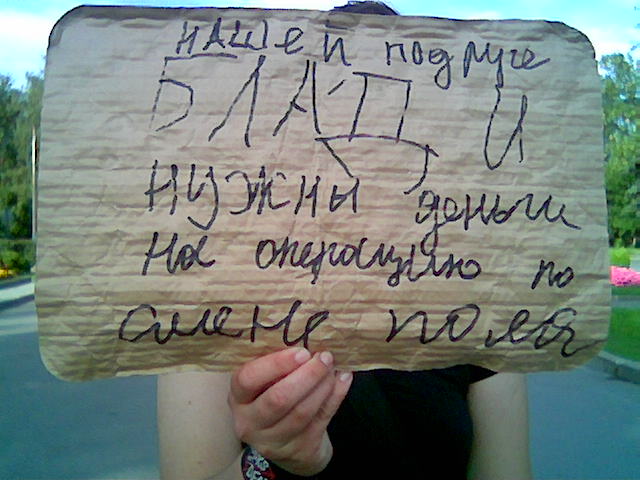 нашей подруге
БЛАД И
нужны деньги
на операцию по
смене пола